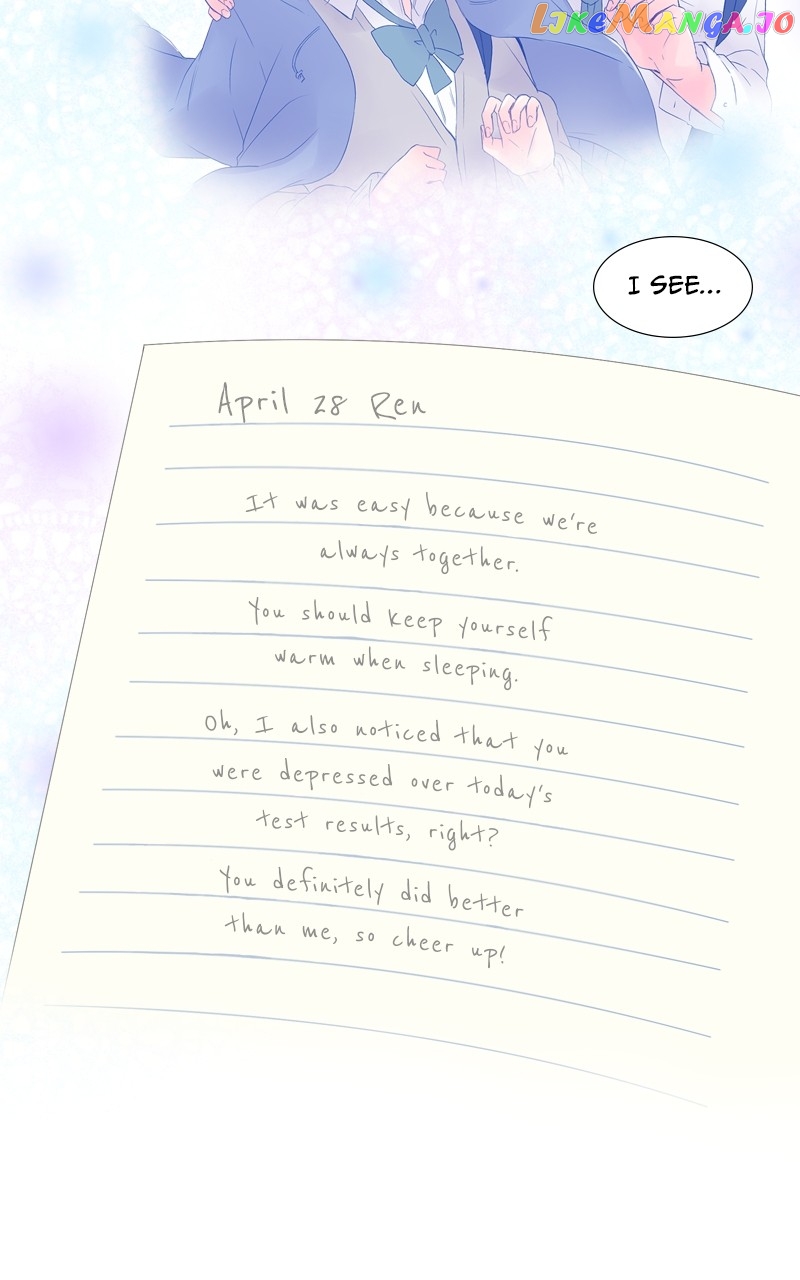 LIKEMANGA.IO
I SEE...
April 28 Ren
It was easy because we're
always together.
You should keep yourself
warm when sleeping.
Oh, I also noticed that you
were depressed over today's
test results, right?
You definitely did better
than me, so cheer up!